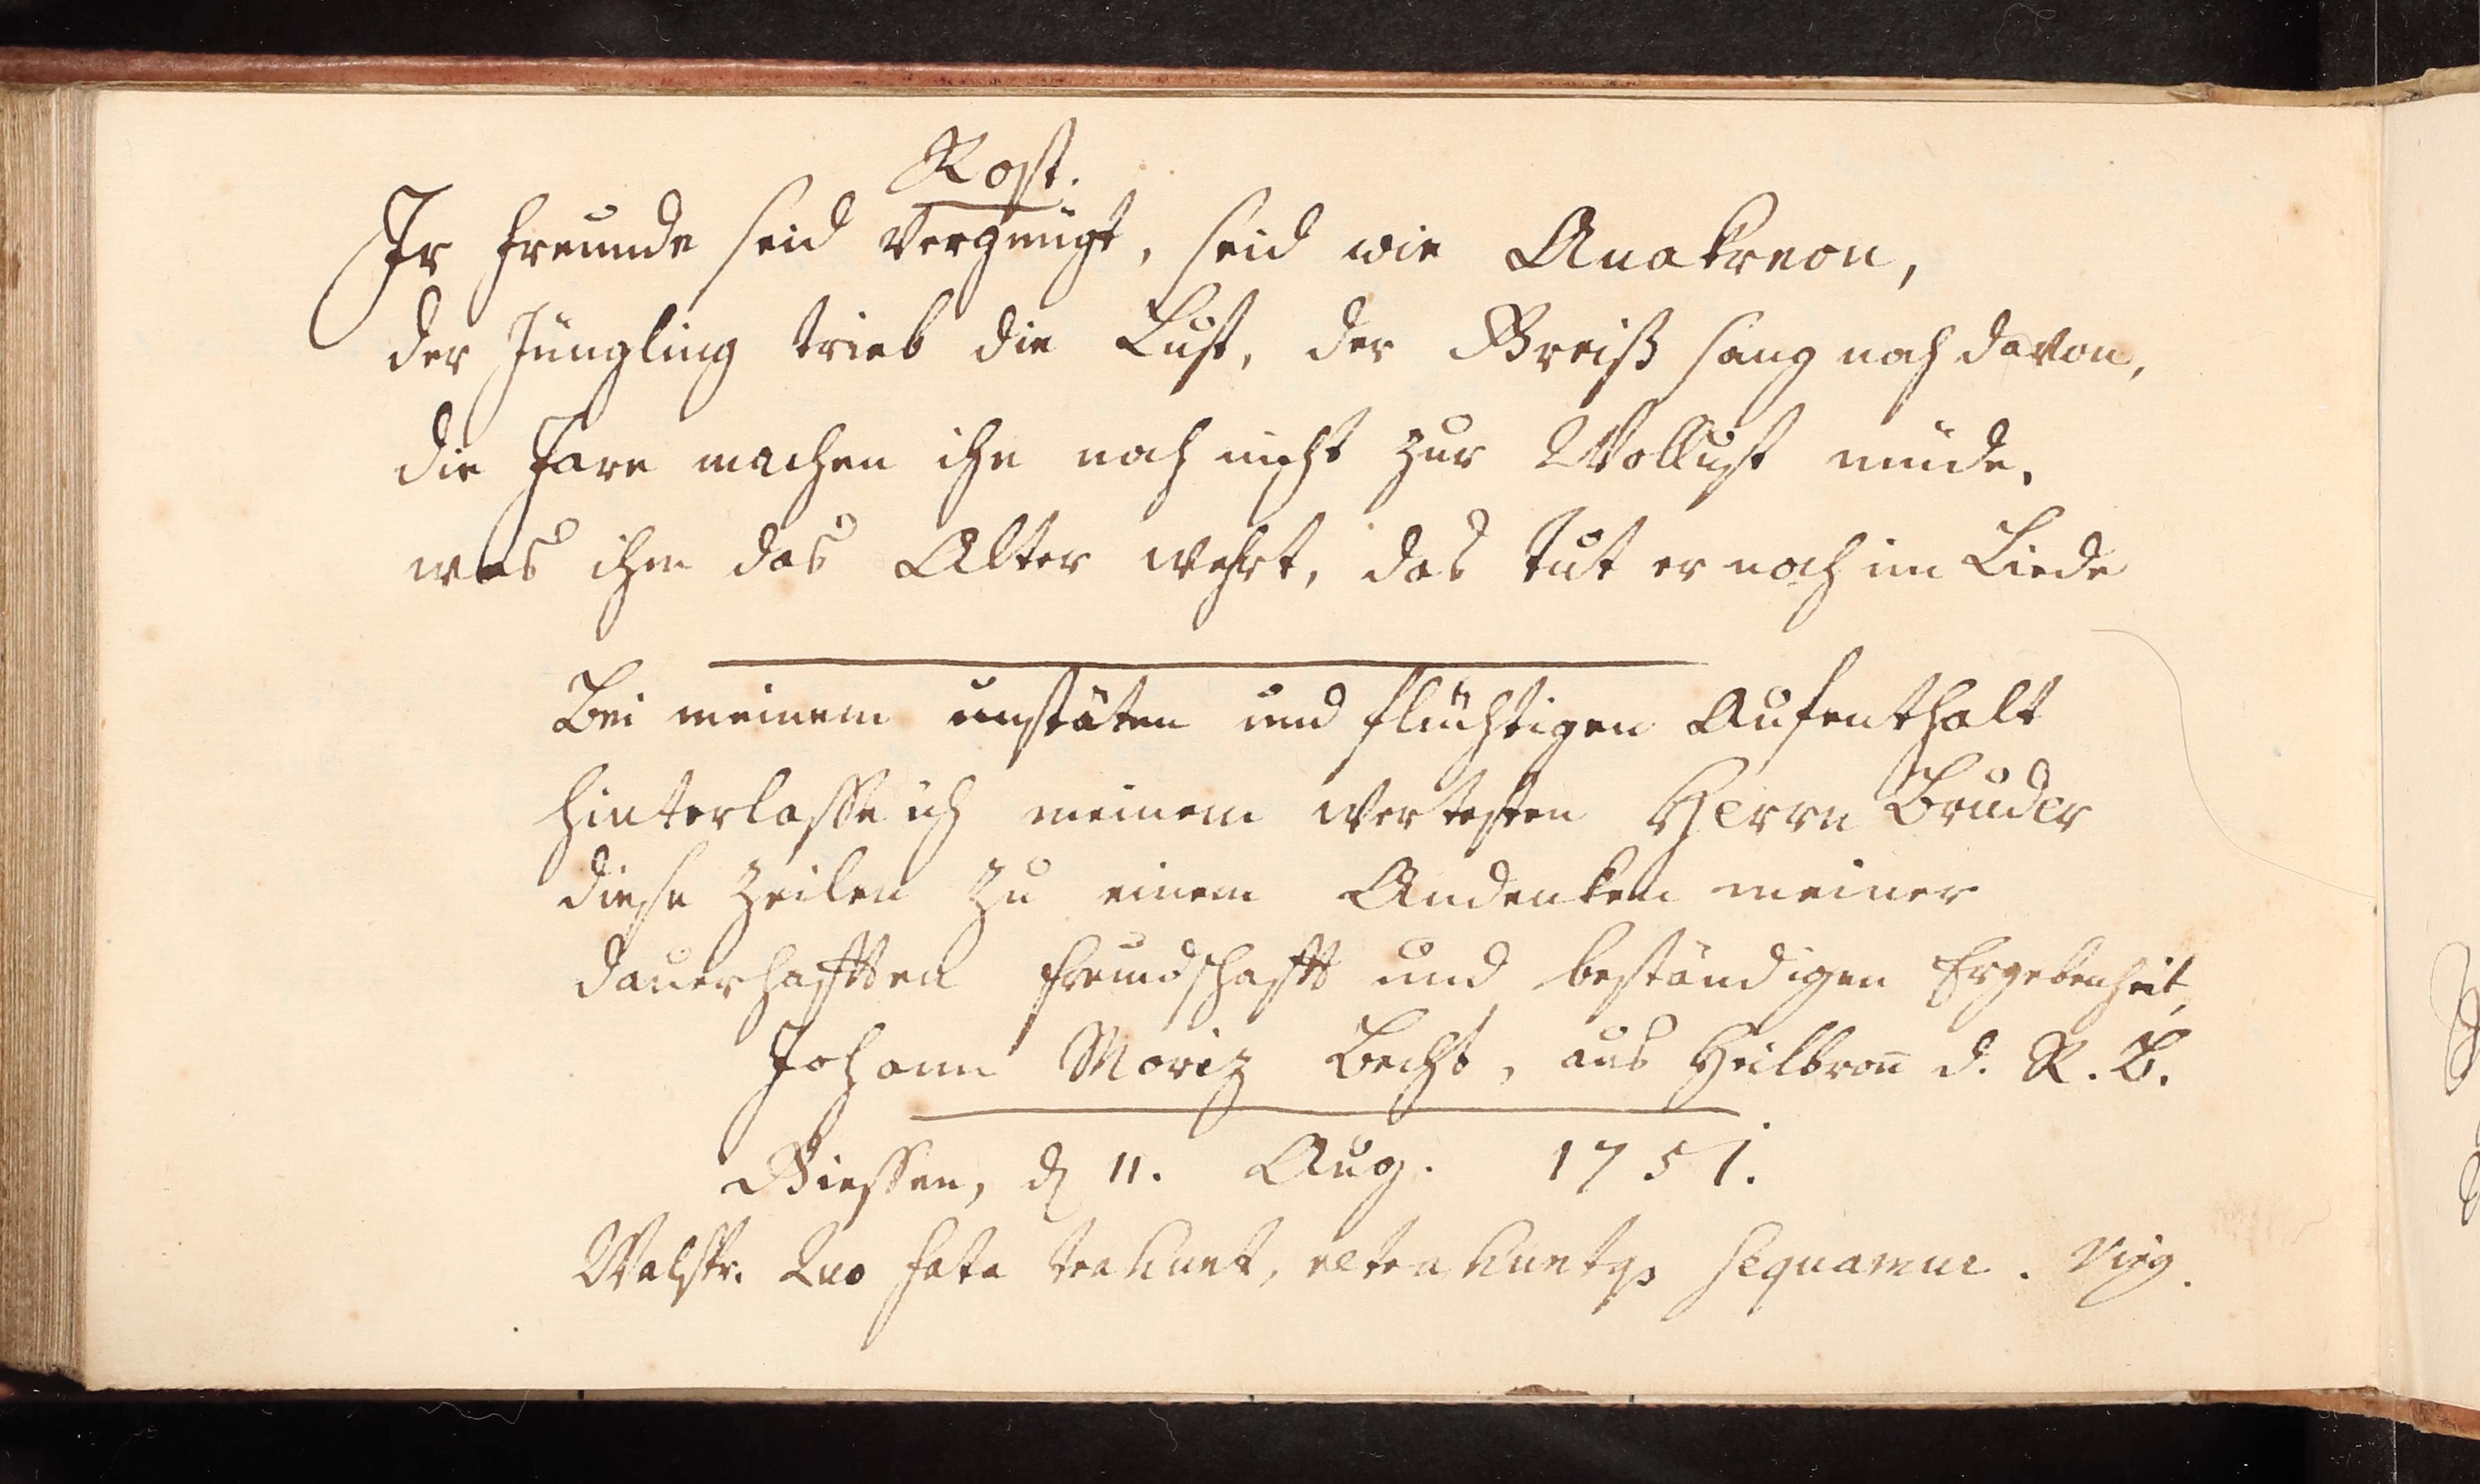 Rost.
Jr Freunde seid vergnügt, seid wie Anakreon,
der Jüngling trieb die Lust, der Greiß sang noch davon,
die Jare machen ihn noch nicht zur Wollust müde,
was ihm das Alter wehrt, das tut er noch im Liede
Bei meinem unstäten und flüchtigen Aufenthalt
hinterlasse ich meinem wertesten Herrn Bruder
diese Zeilen zu einem Andenken meiner
dauerhafften Freundschafft und beständigen Ergebenheit,
Johann Moriz Becht, aus Heilbroñ d. R. B.
Giessen, d 11. Aug. 1751.
Walspr. Quo fata trahunt, retrahuntqȝ sequamur. Virg.